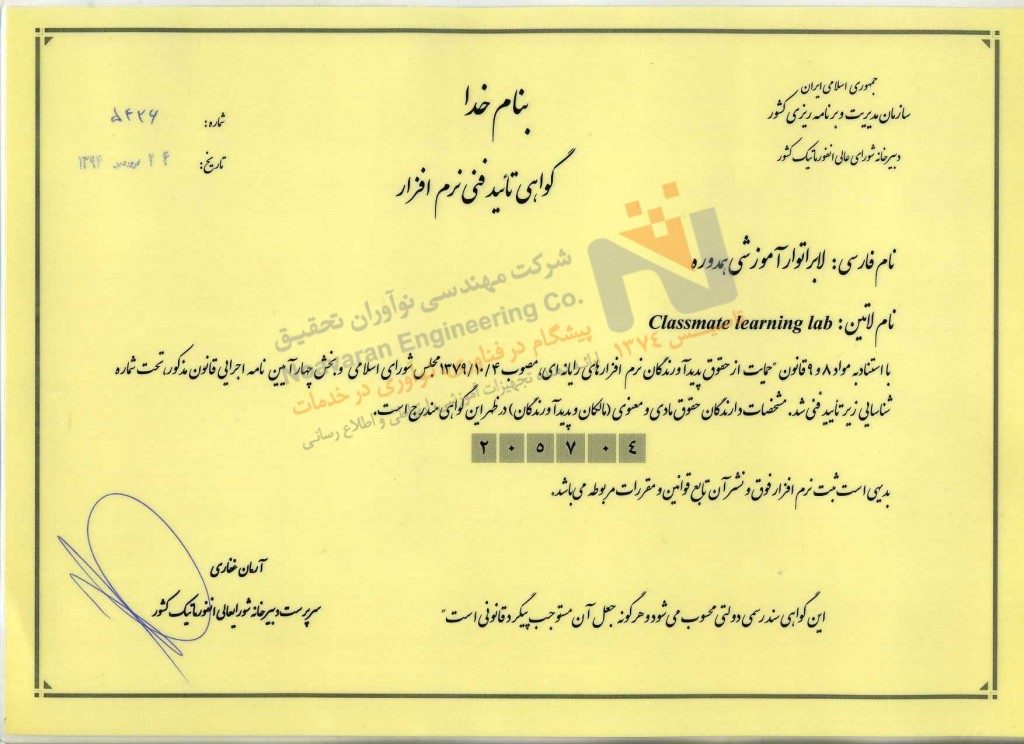 بنام خدا
گواهی تائید فنی نرم افزار
جمهوری اسلامی ایران
سازمان مدیریت و برنامه ریزی کشور
دبیرخانه شورای عالی انفورماتیک کشور
شماره: ۵۴۲۶
تاریخ: ۲۴ فروردین ۱۳۹۴
نام فارسی: لابراتوار آموزشی همدوره
نام لاتین: Classmate learning lab
با استناد به مواد ۸ و ۹ قانون "حمایت از حقوق پدیدآورندگان نرم افزارهای رایانه ای، مصوب ۱۳۷۹/۱۰/۴ مجلس شورای اسلامی و بخش چهار آیین نامه اجرایی قانون مذکور، تحت شماره
شناسایی زیر تأیید فنی شد. مشخصات دارندگان حقوق مادی و معنوی (مالکان و پدیدآورندگان) در ظهر این گواهی مندرج است.
۲۰۵۷۰۴
بدیهی است ثبت نرم افزار فوق و نشر آن تابع قوانین و مقررات مربوطه می باشد.
آرمان غفاری
سرپرست دبیرخانه شورایعالی انفورماتیک کشور
این گواهی سند رسمی دولتی محسوب می شود و هر گونه جعل آن مستوجب پیگرد قانونی است"
شرکت مهندسی نوآوران تحقیق
Noavaran Engineering Co.
پیشگام در فناوری نوآوری در خدمات
تاسیس ۱۳۷۴
تجهیزات آموزشی و اطلاع رسانی